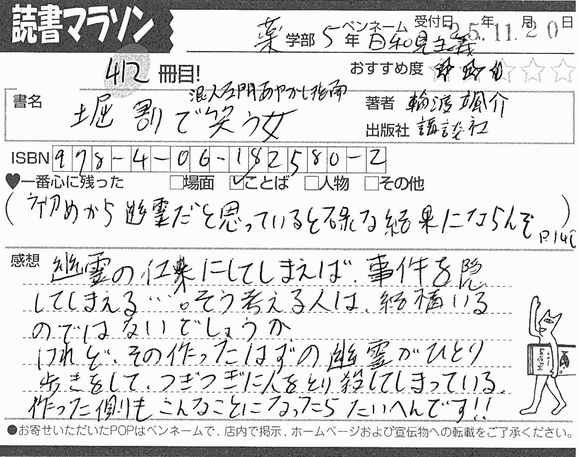 読書マラソン
薬学部5年 ペンネーム 日和見主義 受付日 25年11月20日
412冊目! おすすめ度 ★★★☆☆
書名 浪人左門あやかし指南
堀割で笑う女
著者 輪渡颯介
出版社 講談社
ISBN 978-4-06-182580-2
♥一番心に残った □場面 ☑ことば □人物 □その他
(初めから幽霊だと思っていると碌な結果にならんぞ P.14)
感想 幽霊の仕業にしてしまえば、事件を隠
してしまえる…。そう考える人は、結構いる
のではないでしょうか
けれど、その作ったはずの幽霊がひとり
歩きをして、つぎつぎに人をとり殺してしまっている。
作った側もこんなことになったらたいへんです!!
●お寄せいただいたPOPはペンネームで、店内で掲示、ホームページおよび宣伝物への転載をご了承ください。